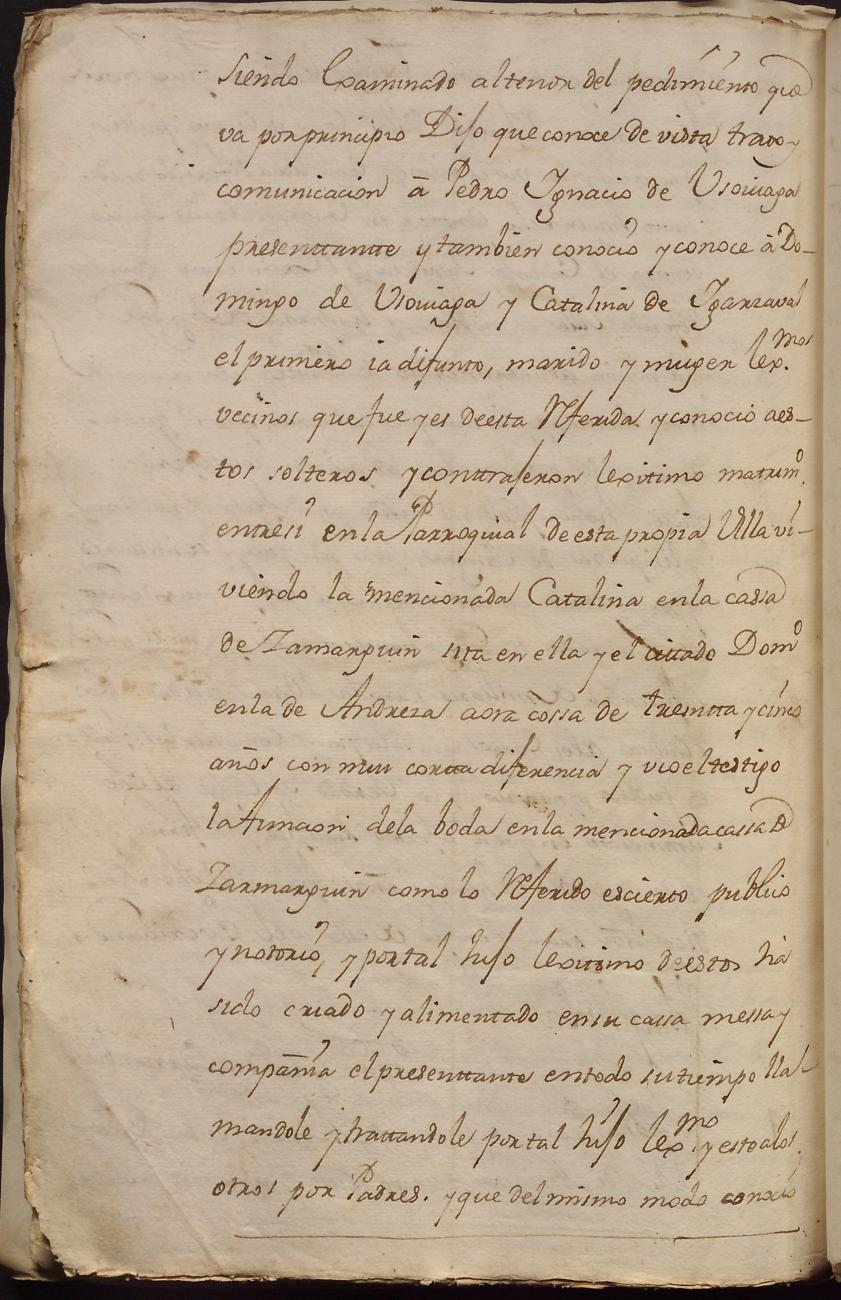 siendo Examinado altenor del pedimiento que
va porprincipio Dijo queconoce de vista trato y
comunicacion â Pedro Ygnacio de Usoviaga
presenttantte y tambien conocio y conoce â Do-
mingo de Usoviaga y Catalina de Yzarzaval
el primero ia difunto, marido y muger lex.mos
vecinos que fue y es deesta Referida y conocio aes-
tos solteros y conttrajeron lexitimo matrim.o
entresi enla Parroquial deesta propia Villa vi-
viendo la mencionada Catalina enla cassa
de Zamarguin sita en ella y el cittado Dom.o
enla de Andreza aora cossa de treintta y cinco
años con mui cortta diferencia y vio eltestigo
la funcion dela boda enla mencionada cassa de
Zarmarguin como lo Referido escierto publico
y notorio, y portal hijo lexitimo deestos hà
sido criado y alimentado ensu cassa messa y
compañia el presenttante entodo sutiempo lla-
mandole y trattandole portal hijo lex.mo y estealos
otros por Padres. y que delmismo modo conocio